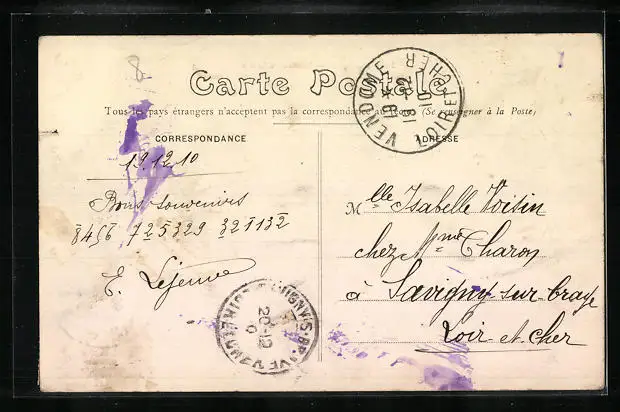 Carte Postale
Tous les pays étrangers n'acceptent pas la correspondance au recto (Se renseigner à la Poste)
CORRESPONDANCE
ADRESSE
VENDOME
LOIR ET CHER
18-12
10
19.12.10
Bons souvenirs
8456 725329 321132
E. Lejeune
Mlle Isabelle Voisin
chez Mme Charon
à Savigny-sur-Braye
Loir et cher
SAVIGNY S. BRAYE
20-12